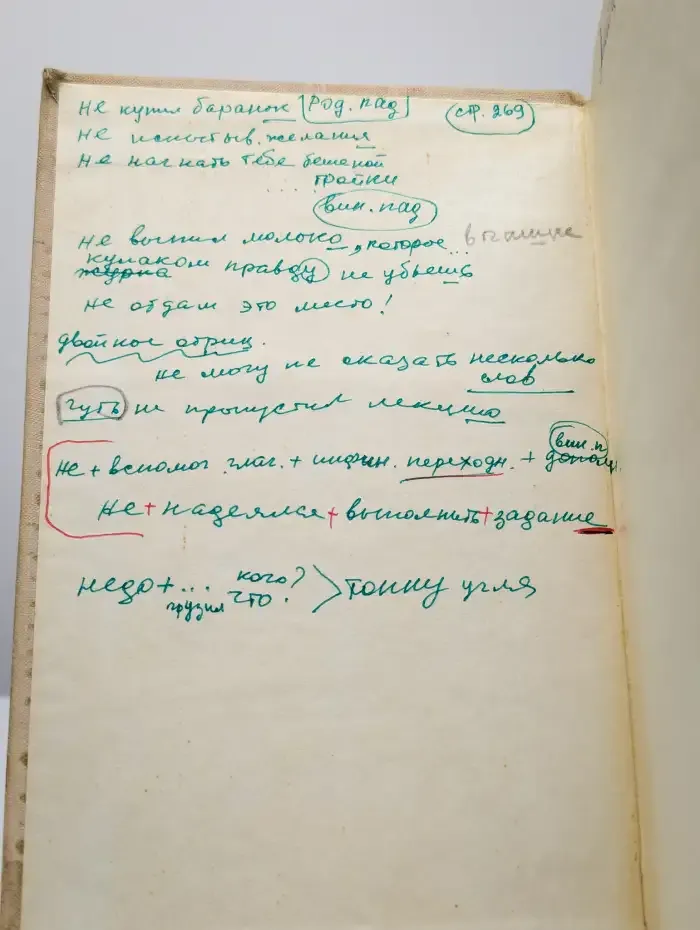 не купил баранок род. пад стр. 269
не испытыв. желания
не нагнать тебе бешеной
тройки
вин. пад
не выпил молоко, которое...
кулаком правду не убьешь
не отдам это место!
двойное отриц.
не могу не сказать несколько
слов
чуть не пропустил лекцию
вин. п
не + вспомог. глаг. + инфин. переходн. + дополн.
не + надеялся + выполнить + задание
недо + ... кого? > тонну угля
грузил что?